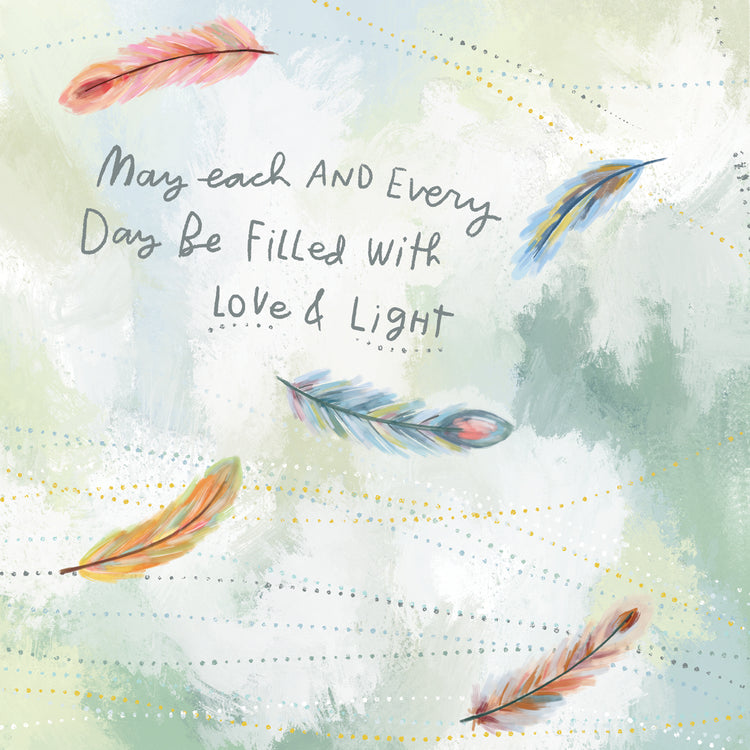 May each AND Every
Day Be Filled with
Love & Light